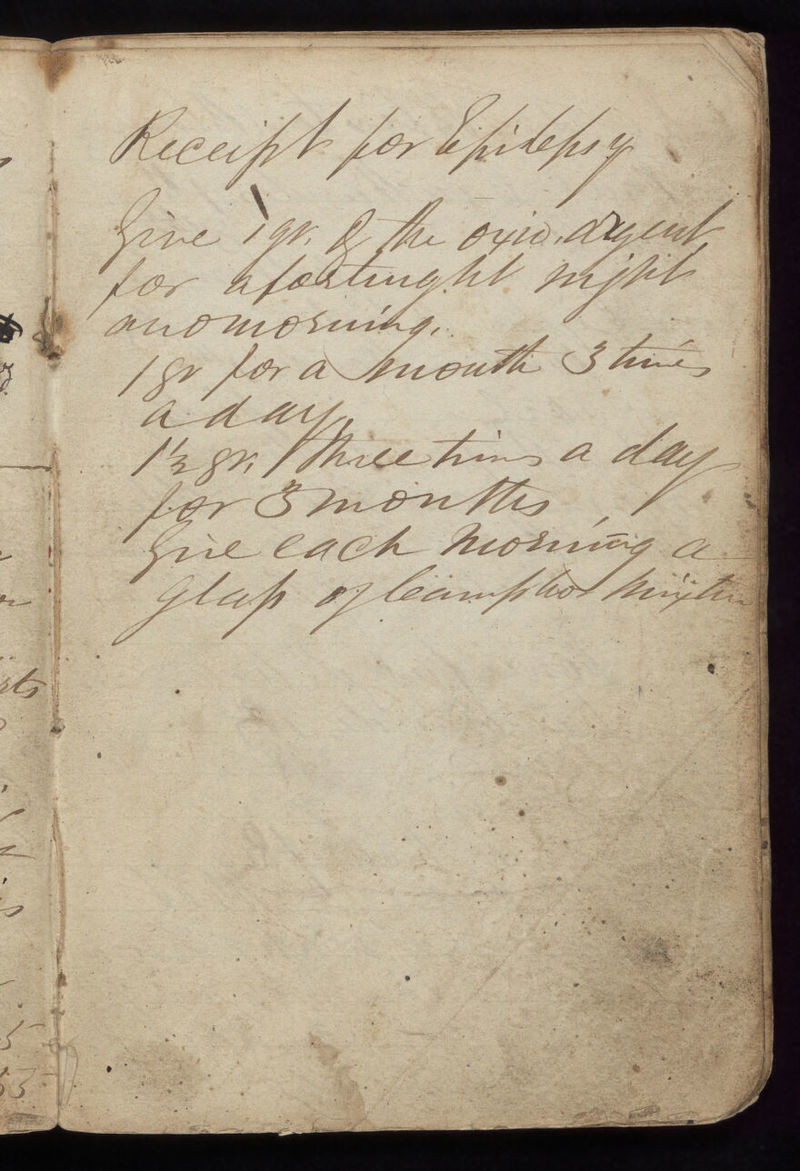 Receipt for Epilepsy
Give 1 gr. of the oxid. argent
for afortinght night
and morning.
1 gr for a month 3 times
a day.
1½ gr. three times a day
for 3 months
Give each morning a
glass of Camphor Mixture